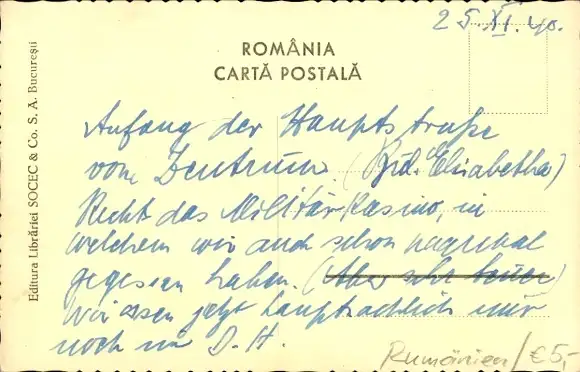 25.XI.40.
ROMÂNIA
CARTĂ POSTALĂ
Editura Librăriei SOCEC & Co. S. A. Bucureşti
Anfang der Hauptstraße
vom Zentrum. (Bd. Elisabetha)
Recht das Militärkasino, in
welchem wir auch schon
gegessen haben. (Aber sehr teuer)
Wir essen jetzt hauptsächlich nur
noch im D. H.
Rumänien / €5,-